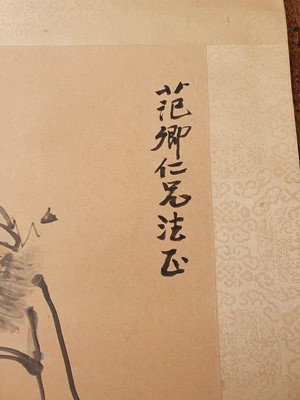 范卿仁兄法正